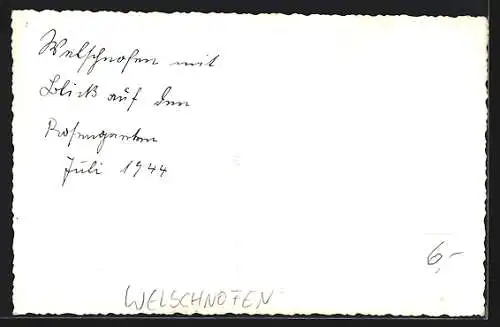 Welschnofen mit
Blick auf den
Rosengarten
Juli 1944
6,-
WELSCHNOFEN